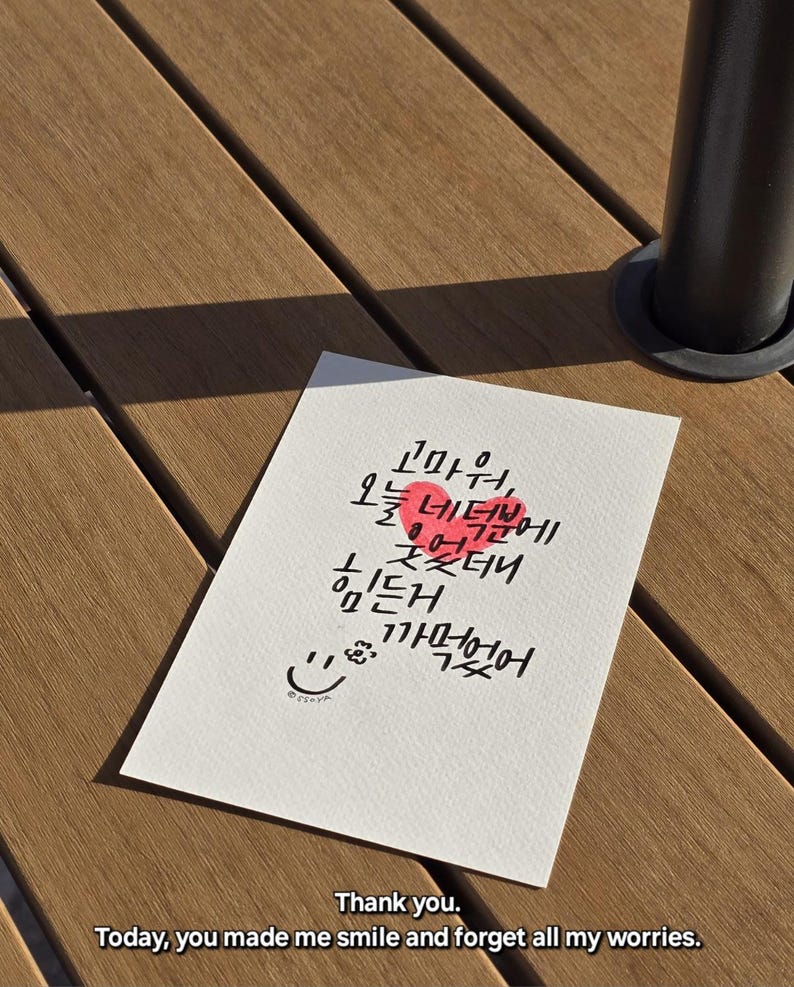 고마워,
오늘 네덕분에
웃었더니
힘든거
까먹었어
©SSOYA
Thank you.
Today, you made me smile and forget all my worries.